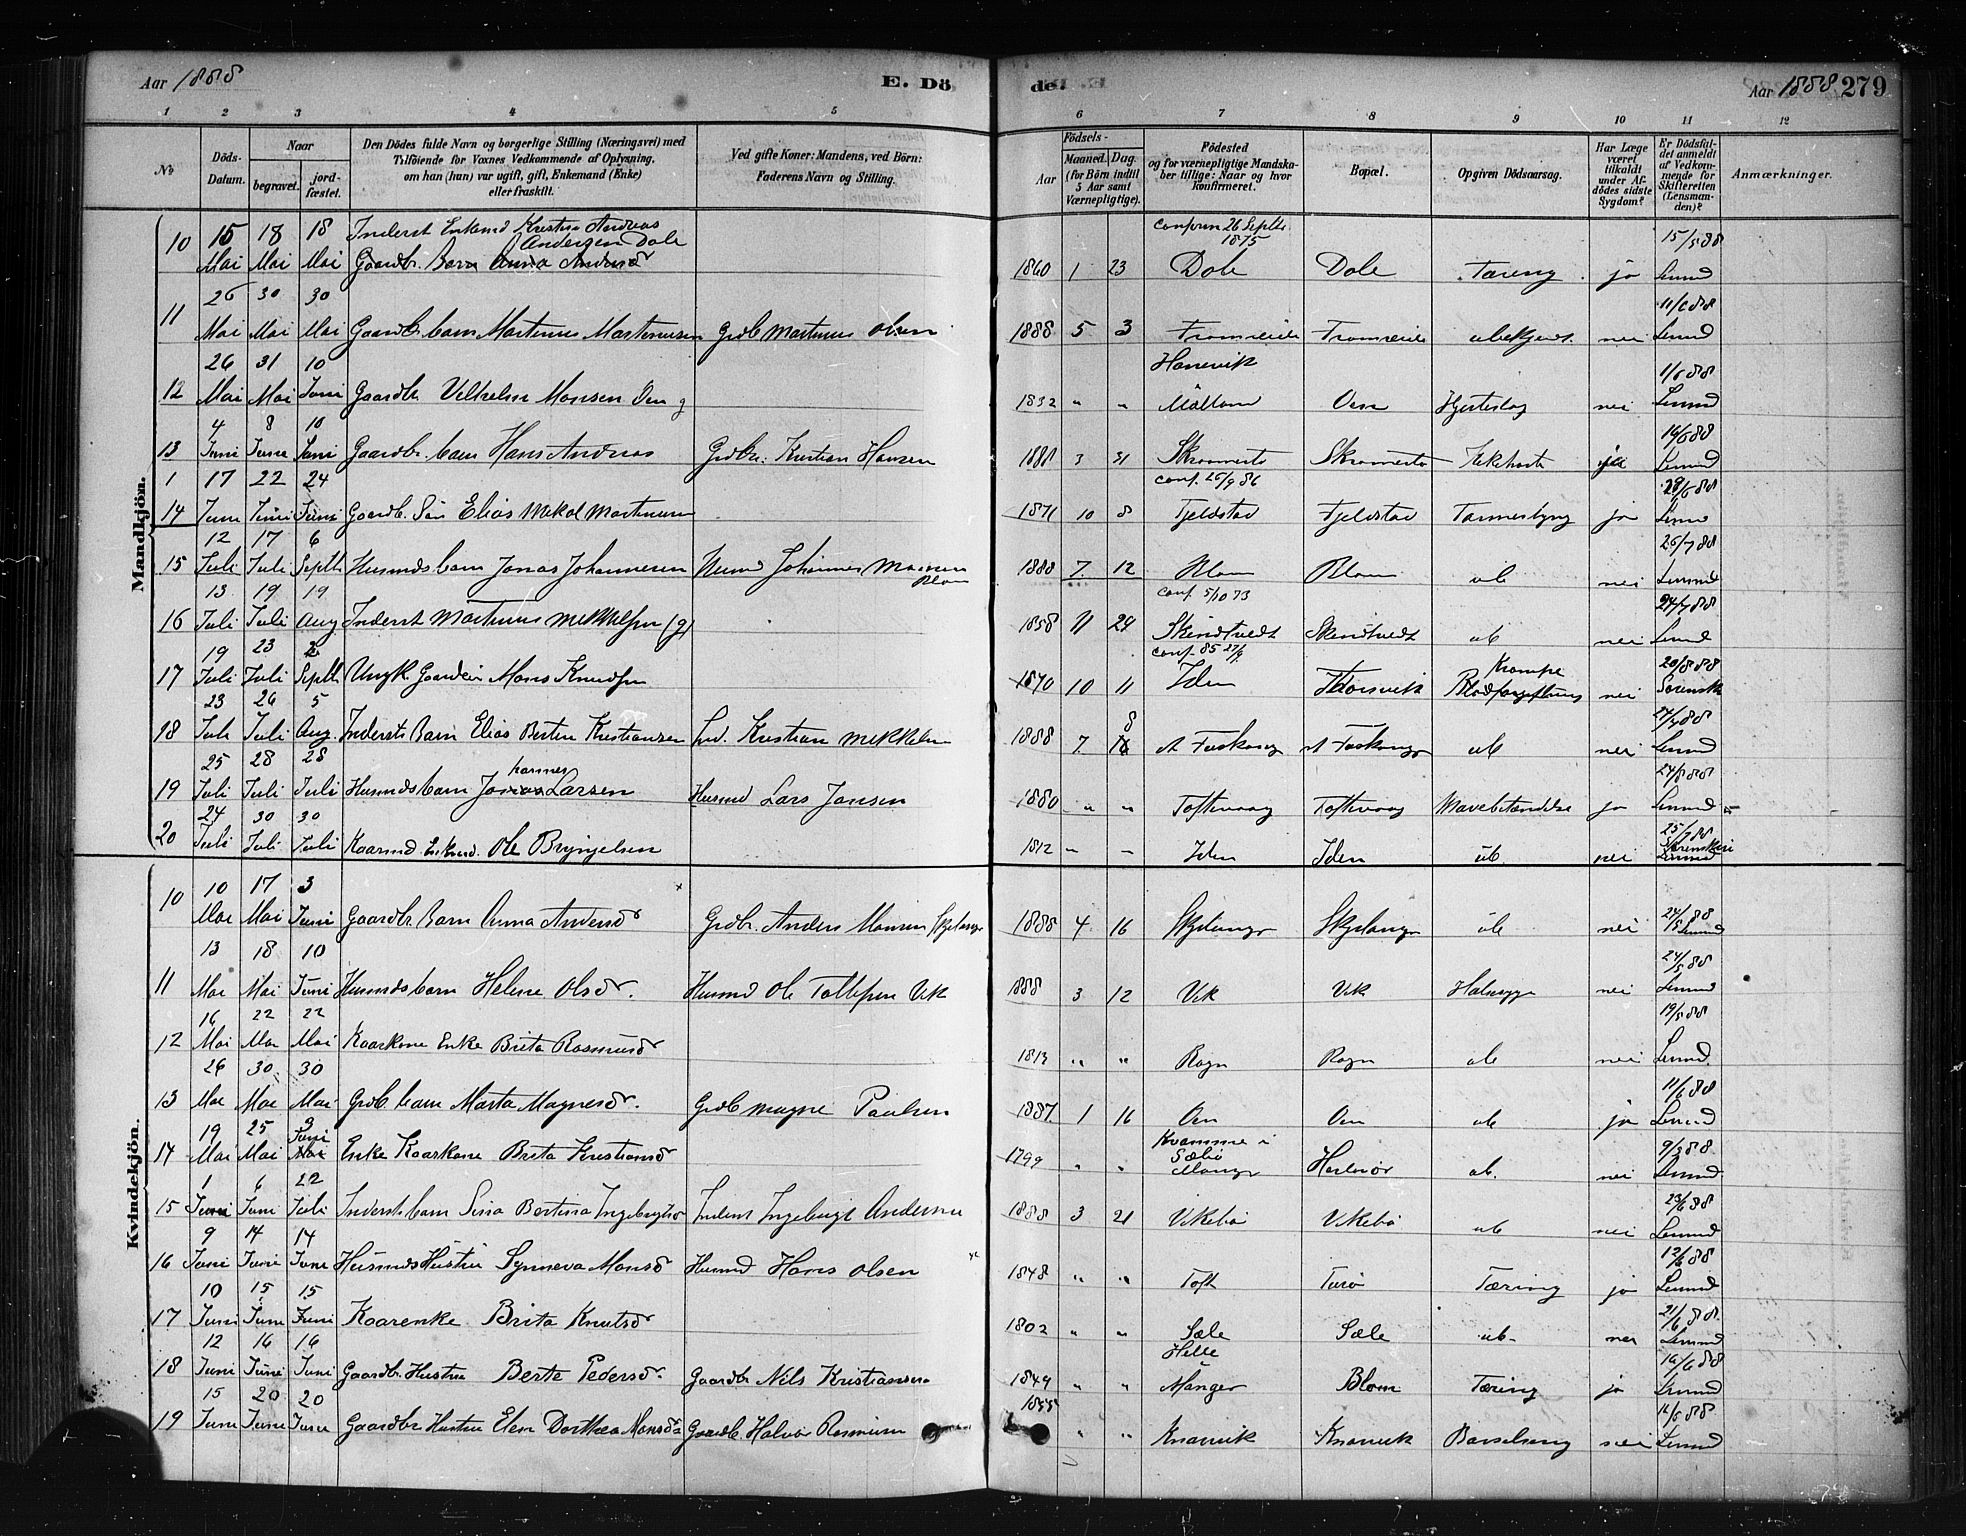 Aar 1888 E. Döde. Aar 1888 279
1 2 3 4 5 6 7 8 9 10 11 12
No
Döds-Datum.
Naar
begravet.
jord-fæstet.
Den Dödes fulde Navn og borgerlige Stilling (Næringsvei) med
Tilföiende for Voxnes Vedkommende af Oplysning,
om han (hun) var ugift, gift, Enkemand (Enke)
eller fraskilt.
Ved gifte Koner: Mandens, ved Börn:
Faderens Navn og Stilling.
Födsels-
Aar
Maaned. Dag.
(for Börn indtil
5 Aar samt
Værnepligtige).
Födested
og for værnepligtige Mandska-
ber tillige: Naar og hvor
konfirmeret.
Bopæl.
Opgiven Dödsaarsag.
Har Læge
været
tilkaldt
under Af-
dödes sidste
Sygdom?
Er Dödsfal-
det anmeldt
af Vedkom-
mende for
Skifteretten
(Lensman-
den)?
Anmærkninger.
Mandkjön.
10 15 Mai 18 Mai 18 Mai Inderst Enkemd Andersen Dale 1860 1 23 confirm 26 Septbr 1875 Dale Dale Tæring ja 15/5 88 Lensmd
11 26 Mai 30 Mai 30 Mai Gaardb. barn Martinus Martinusen Grdb Martinus Olsen 1888 5 3 ubekjendt nei 11/6 88 Lensmd
12 26 Mai 31 Mai 10 Juni Gaardbr Vilhelm Monsen Oen g 1832 " " Oen Hjerteslag nei 1/6 88 Lensmd
13 4 Juni 8 Juni 10 Juni Gaardbr. barn Hans Andreas Grdbr. Kristian Hansen 3 31 Kikhoste Lensmd
14 17 Juni 22 Juni 24 Juni Gaardb. Sön Elias Mikal Martinusen 1871 10 8 conf. 26/9 86 Fjeldstad Fjeldstad ja 28/6 88
15 12 Juli 17 Juli 6 Septb Husmds barn Jonas Johannesen Husmd Johannes Monsen Blom 1888 7. 12 Blom Blom ub nei 26/7 88 Lensmd
16 13 Juli 19 Juli 19 Aug Inderst Martinus Mikkelsen (g) 1858 11 29 conf. 5/10 73 Skindtvedt Skindtvedt ub nei 24/7 88 Lensmd
17 19 Juli 23 Juli 2 Septb Ungk Mons Knudsen 1870 10 11 conf. 85 27/9 Iden Krampe nei 20/8 88 Sorensk
18 23 Juli 26 Juli 5 Aug. Indersts Barn Elias Bertin Kristiansen Ind. Kristian Mikkelsen 1888 7. 8 ub nei 24/7 88 Lensmd
19 25 Juli 28 Juli 28 Juli Husmds barn Johannes Larsen Husmd Lars Jansen 1880 " " Toftevaag Toftevaag Mavebetændelse ja Lensmd
20 24 Juli 30 Juli 30 Juli Kaarmd. Enkmd. Ole Brynjelsen 1812 – – Iden Iden ub nei 25/7 88 Lensmd
Kvindekjön.
10 10 Mai 17 Mai 3 Juni Gaardbr Barn Anna Andersd Grdbr. Anders Monsen Skjelanger 1888 4 16 Skjelanger Skjelanger ub nei 24/5 88 Lensmd
11 13 Mai 18 Mai 10 Juni Husmds barn Helene Olsd. Husmd Ole Tollefsen Vik 1888 3 12 Vik Vik Halssyge nei 24/5 88 Lensmd
12 16 Mai 22 Mai 22 Mai Kaarkone Enke Brita Rasmusd 1813 " " Rogn Rogn ub nei 19/5 88 Lensmd.
13 26 Mai 30 Mai 30 Mai Grdb. barn Marta Magnesd. Grdb Magne Paulsen 1887. 1 16 Oen Oen ub ja 11/6 88 Lensmd
14 19 Mai 25 Mai 3 Juni Enke Kaarkone Brita Kristiansd 1799 " " Kvamme i Sæbö Manger ub. nei Lensmd
15 1 Juni 6 Juni 22 Juli Inderst barn Sina Bertina Ingebrigtsd Inderst Ingebrigt Andersen 1888 3 21 Vikebö Vikebö ub nei 23/6 88 Lensmd
16 9 Juni 14 Juni 14 Juni Husmds Hustru Synneva Monsd Husmd Hans Olsen 1848 " " Toft Turö Tæring ja 12/6 88 Lensmd
17 10 Juni 15 Juni 15 Juni Kaarenke Brita Knutsd 1802 " " Sæle Sæle ub- nei 21/6 88. Lensmd
18 12 Juni 16 Juni 16 Juni Gaardbr. Hustru Berte Pedersd. Gaardbr Nils Kristiansen 1849 " " Helle Manger Blom Tæring ja 16/6 88 Lensmd
19 15 Juni 20 Juni 20 Juni Gaardbr Hustru Elen Dorthea Monsd Gaardb. Halvor Rasmusen 1855 " " Knarvik Knarvik Barselseng nei Lensmd